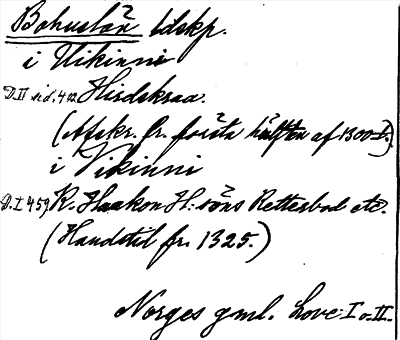 Bohuslän ldskp.
i Uikinni
D. II sid. 402. Hirdskraa.
(Afskr. fr. första hälften af 1300-t.)
i Vikinni
D. I 459, K. Haakon H:söns Retterbod etc.
(Handstil fr. 1325.)
Norges gml. Love I o. II.